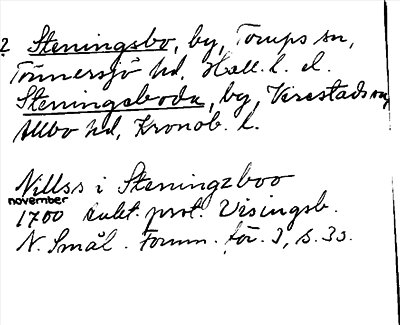 ? Steningsbo, by, Torups sn,
Tönnersjö hd, Hall. l. el.
Steningsboda, by, Virestads sn,
Allbo hd, Kronob. l.
Nillss i Steningzboo
november
1700 aukt. prot. Visingsb.
N. Smål. Fornm. för. 3, s. 33.